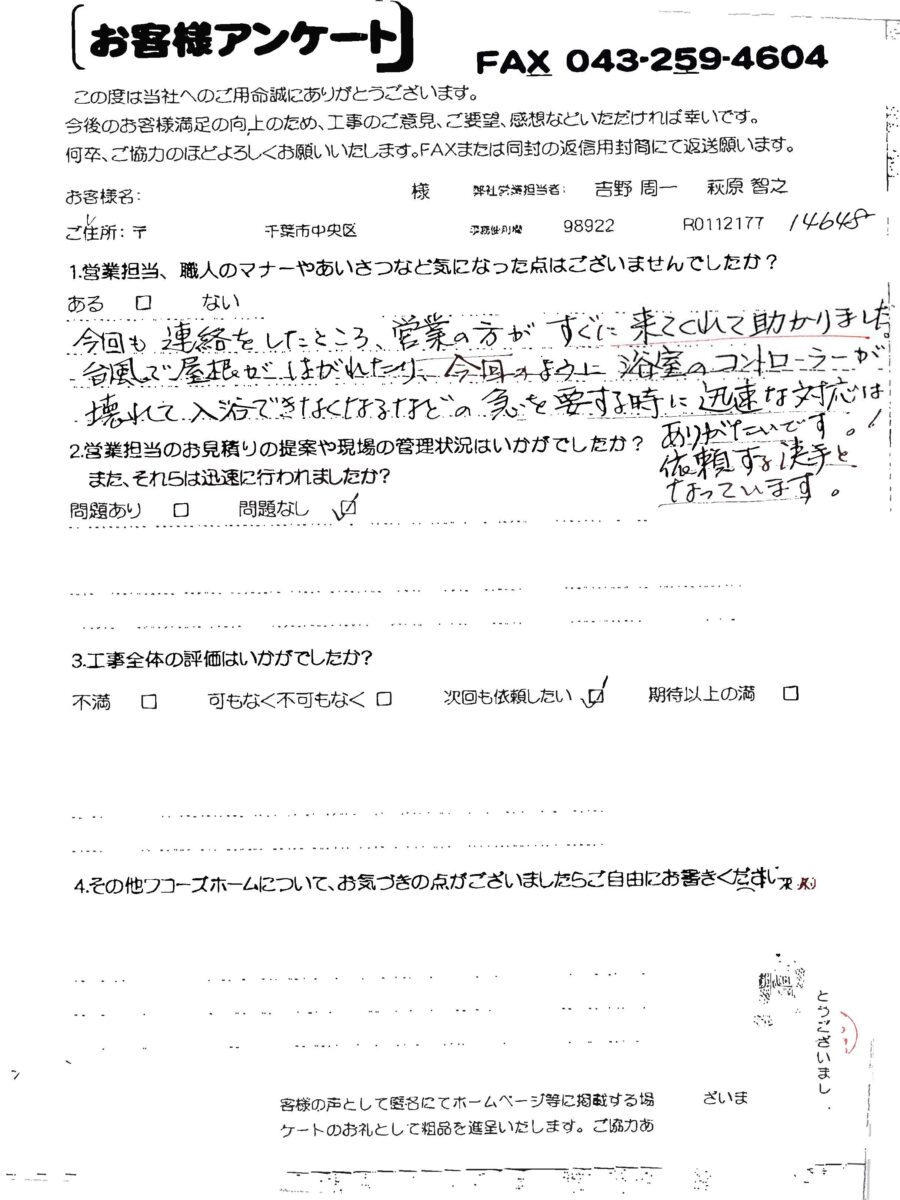 お客様アンケート
FAX 043-259-4604
この度は当社へのご用命誠にありがとうございます。
今後のお客様満足の向上のため、工事のご意見、ご要望、感想などいただければ幸いです。
何卒、ご協力のほどよろしくお願いいたします。FAXまたは同封の返信用封筒にて返送願います。
お客様名: 様 弊社営業担当者: 吉野 周一 萩原 智之
ご住所: 〒 千葉市中央区 98922 R0112177 14648
1.営業担当、職人のマナーやあいさつなど気になった点はございませんでしたか?
ある □ ない
今回も連絡をしたところ、営業の方がすぐに来てくれて助かりました。
台風で屋根がはがれたり、今回のように浴室のコントローラーが
壊れて入浴できなくなるなどの急を要する時に迅速な対応は
ありがたいです。!
依頼する決手と
なっています。
2.営業担当のお見積りの提案や現場の管理状況はいかがでしたか?
また、それらは迅速に行われましたか?
問題あり □ 問題なし ☑
3.工事全体の評価はいかがでしたか?
不満 □ 可もなく不可もなく □ 次回も依頼したい ☑ 期待以上の満 □
4.その他ワコーズホームについて、お気づきの点がございましたらご自由にお書きください
とうございまし
客様の声として匿名にてホームページ等に掲載する場 ざいま
ケートのお礼として粗品を進呈いたします。ご協力あ